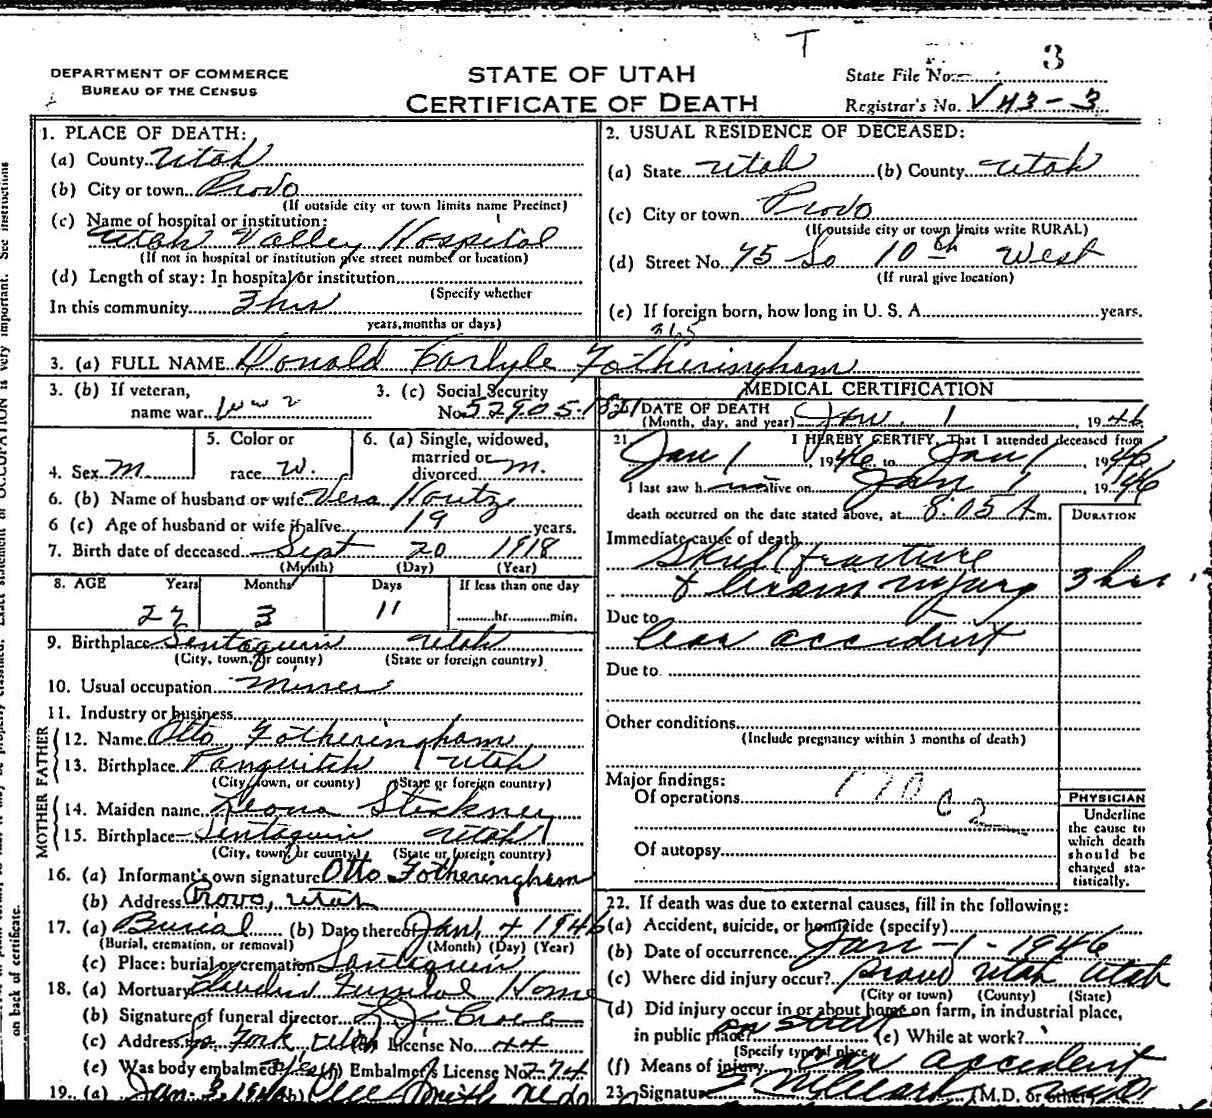 T
3
DEPARTMENT OF COMMERCE
BUREAU OF THE CENSUS
STATE OF UTAH
CERTIFICATE OF DEATH
State File No.
Registrar's No. V43-3
1. PLACE OF DEATH:
(a) County Utah
(b) City or town Provo
(If outside city or town limits name Precinct)
(c) Name of hospital or institution:
Utah Valley Hospital
(If not in hospital or institution give street number or location)
(d) Length of stay: In hospital or institution
(Specify whether
In this community 3 hrs
years, months or days)
2. USUAL RESIDENCE OF DECEASED:
(a) State Utah (b) County Utah
(c) City or town Provo
(If outside city or town limits write RURAL)
(d) Street No. 75 So 10th West
(If rural give location)
(e) If foreign born, how long in U. S. A. years.
365
3. (a) FULL NAME Donald Carlyle Fotheringham
3. (b) If veteran, name war ww2
3. (c) Social Security No. 52905
4. Sex M.
5. Color or race W.
6. (a) Single, widowed, married or divorced M.
6. (b) Name of husband or wife Vera Houtz
6 (c) Age of husband or wife if alive 19 years.
7. Birth date of deceased Sept 20 1918
(Month) (Day) (Year)
8. AGE Years Months Days If less than one day
27 3 11 hr. min.
9. Birthplace Santaquin Utah
(City, town, or county) (State or foreign country)
10. Usual occupation Miner
11. Industry or business
FATHER
12. Name Otto Fotheringham
13. Birthplace Panguitch Utah
(City, town, or county) (State or foreign country)
MOTHER
14. Maiden name Leona Stickney
15. Birthplace Santaquin Utah
(City, town, or county) (State or foreign country)
16. (a) Informant's own signature Otto Fotheringham
(b) Address Provo, Utah
17. (a) Burial (b) Date thereof Jan. 4 1946
(Burial, cremation, or removal) (Month) (Day) (Year)
(c) Place: burial or cremation Santaquin
18. (a) Mortuary Claudin Funeral Home
(b) Signature of funeral director
(c) Address Sp Fork Utah License No. 44
(e) Was body embalmed? Yes Embalmer's License No. 274
19. (a) Jan. 3, 1946 (b)
MEDICAL CERTIFICATION
20. DATE OF DEATH
(Month, day, and year) Jan. 1, 1946
21. I HEREBY CERTIFY, That I attended deceased from
Jan 1, 1946 to Jan 1, 1946
I last saw him alive on Jan 1, 1946
death occurred on the date stated above, at 8:05 A m.
DURATION
Immediate cause of death
Skull fracture
& brain injury 3 hrs
Due to
car accident
Due to
Other conditions
(Include pregnancy within 3 months of death)
Major findings:
Of operations
170 C 2
Of autopsy
PHYSICIAN
Underline
the cause to
which death
should be
charged sta-
tistically.
22. If death was due to external causes, fill in the following:
(a) Accident, suicide, or homicide (specify)
(b) Date of occurrence Jan - 1 - 1946
(c) Where did injury occur? Provo Utah Utah
(City or town) (County) (State)
(d) Did injury occur in or about home on farm, in industrial place,
in public place? on street (e) While at work?
(Specify type of place)
(f) Means of injury car accident
23. Signature (M.D. or other)